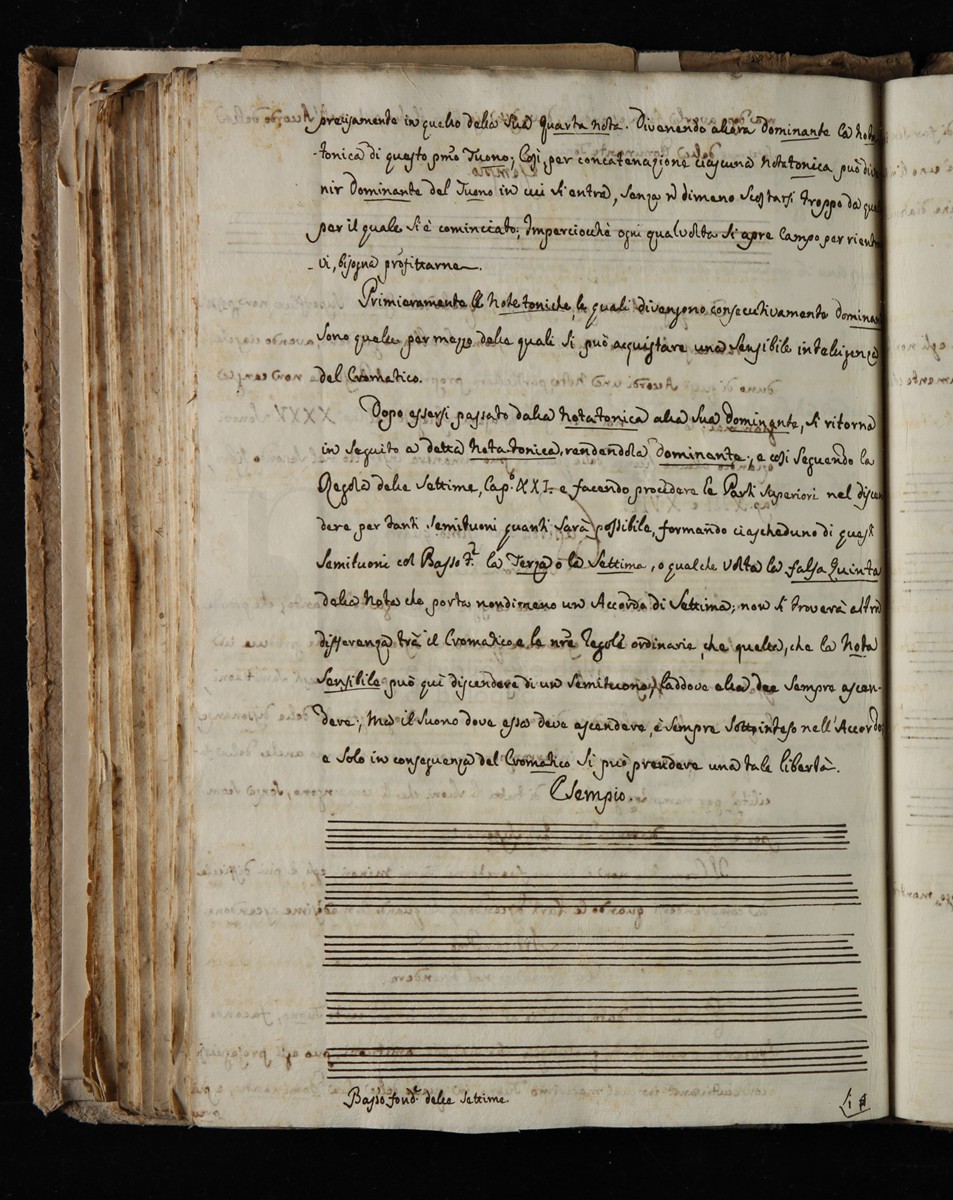 precisamente in quello della sua quarta nota. Divenendo allora dominante la Nota
tonica di questo pmo Tuono; Così, per concatenazione ciascuna nota tonica può dive
nir Dominante del Tuono in cui si entra, senza ndimeno scostarsi troppo da quel
per il quale si è cominciato; Imperciocchè ogni qualvolta si apre campo per rientrar
vi, bisogna profittarne.
Primieramente le Note toniche, le quali divengono consecutivamente dominan
sono quelle per mezzo delle quali si può acquistare una sensibile intelligenza
del Cromatico.
Dopo essersi passato dalla nota tonica alla sua dominante, si ritorna
in seguito a detta nota tonica, rendendola dominante; e così seguendo la
Regola delle Settime, Cap.º XXI. e facendo procedere le Parti superiori nel discen
dere per tanti semituoni quanti sarà possibile, formando ciascheduno di questi
semituoni col Basso f.l la Terza o la Settima, o qualche volta la falsa Quinta
della Nota che porta nondimeno un Accordo di Settima; non si troverà altra
differenza trà il Cromatico e le nre regole ordinarie, che quella, che la Nota
sensibile può quì discendere di un Semituono, laddove ella dee sempre ascen-
dere; Ma il suono dove essa deve ascendere, è sempre sottointeso nell'Accordo,
e solo in conseguenza del Cromatico si può prendere una tale libertà.
Esempio.
Basso fond.l delle Settime.